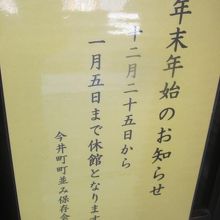 年末年始のお知らせ
十二月二十五日から
一月五日まで休館となります
今井町町並み保存会